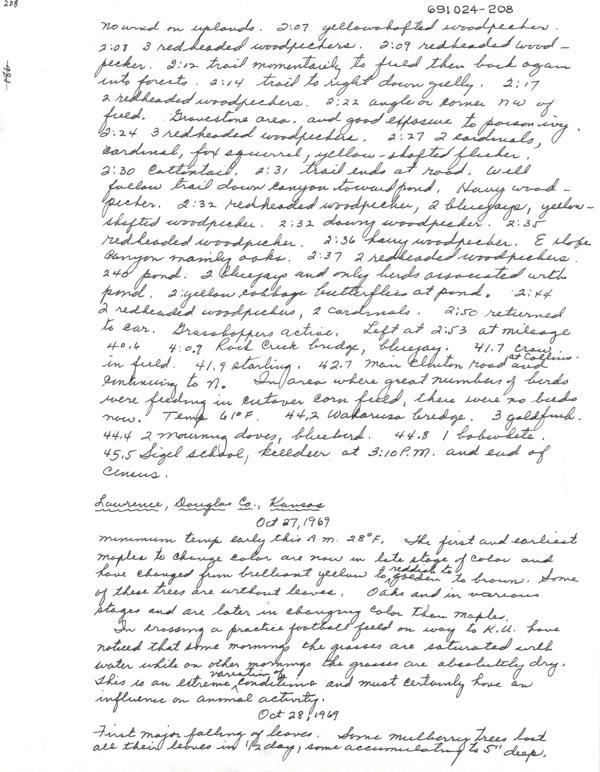 208
691024-208
-98-
no wind on uplands. 2:07 yellowshafted woodpecker.
2:08 3 redheaded woodpeckers. 2:09 redheaded wood-
pecker. 2:12 trail momentarily to field then back again
into forests. 2:14 trail to right down gully. 2:17
2 redheaded woodpeckers. 2:22 angle or corner NW of
field. Gravestone area. and good exposure to poison ivy.
2:24 3 redheaded woodpeckers. 2:27 2 cardinals,
cardinal, fox squirrel, yellow-shafted flicker.
2:30 Cottontail. 2:31 trail ends at road. Will
follow trail down canyon toward pond. Hairy wood-
pecker. 2:32 redheaded woodpecker, 2 bluejays, yellow-
shafted woodpecker. 2:32 downy woodpecker. 2:35
redheaded woodpecker. 2:36 hairy woodpecker. E slope
canyon mainly oaks. 2:37 2 redheaded woodpeckers.
240 pond. 2 bluejays and only birds associated with
pond. 2 yellow cabbage butterflies at pond. 2:44
2 redheaded woodpeckers, 2 cardinals. 2:50 returned
to car. Grasshoppers active. Left at 2:53 at mileage
40.6 40.9 Rock Creek bridge, bluejay. 41.7 crow
in field. 41.9 starling. 42.7 main Clinton road at Collins. and
continuing to N. In area where great numbers of birds
were feeding in cutover corn field, there were no birds
now. Temp 61°F. 44.2 Wakarusa bridge. 3 goldfinch.
44.4 2 mourning doves, bluebird. 44.8 1 bobwhite.
45.5 Sigel school, killdeer at 3:10 P.M. and end of
census.
Lawrence, Douglas Co., Kansas
Oct 27, 1969
Minimum temp early this A.M. 28°F. The first and earliest
maples to change color are now in late stage of color and
have changed from brilliant yellow to reddish to golden to brown. Some
of these trees are without leaves. Oaks and in various
stages and are later in changing color than maples.
In crossing a practice football field on way to K.U. have
noticed that some mornings the grasses are saturated with
water while on other mornings the grasses are absolutely dry.
This is an extreme variation of conditions and must certainly have an
influence on animal activity.
Oct 28, 1969
First major falling of leaves. Some mulberry trees lost
all their leaves in 1/2 day, some accumulating to 5" deep.